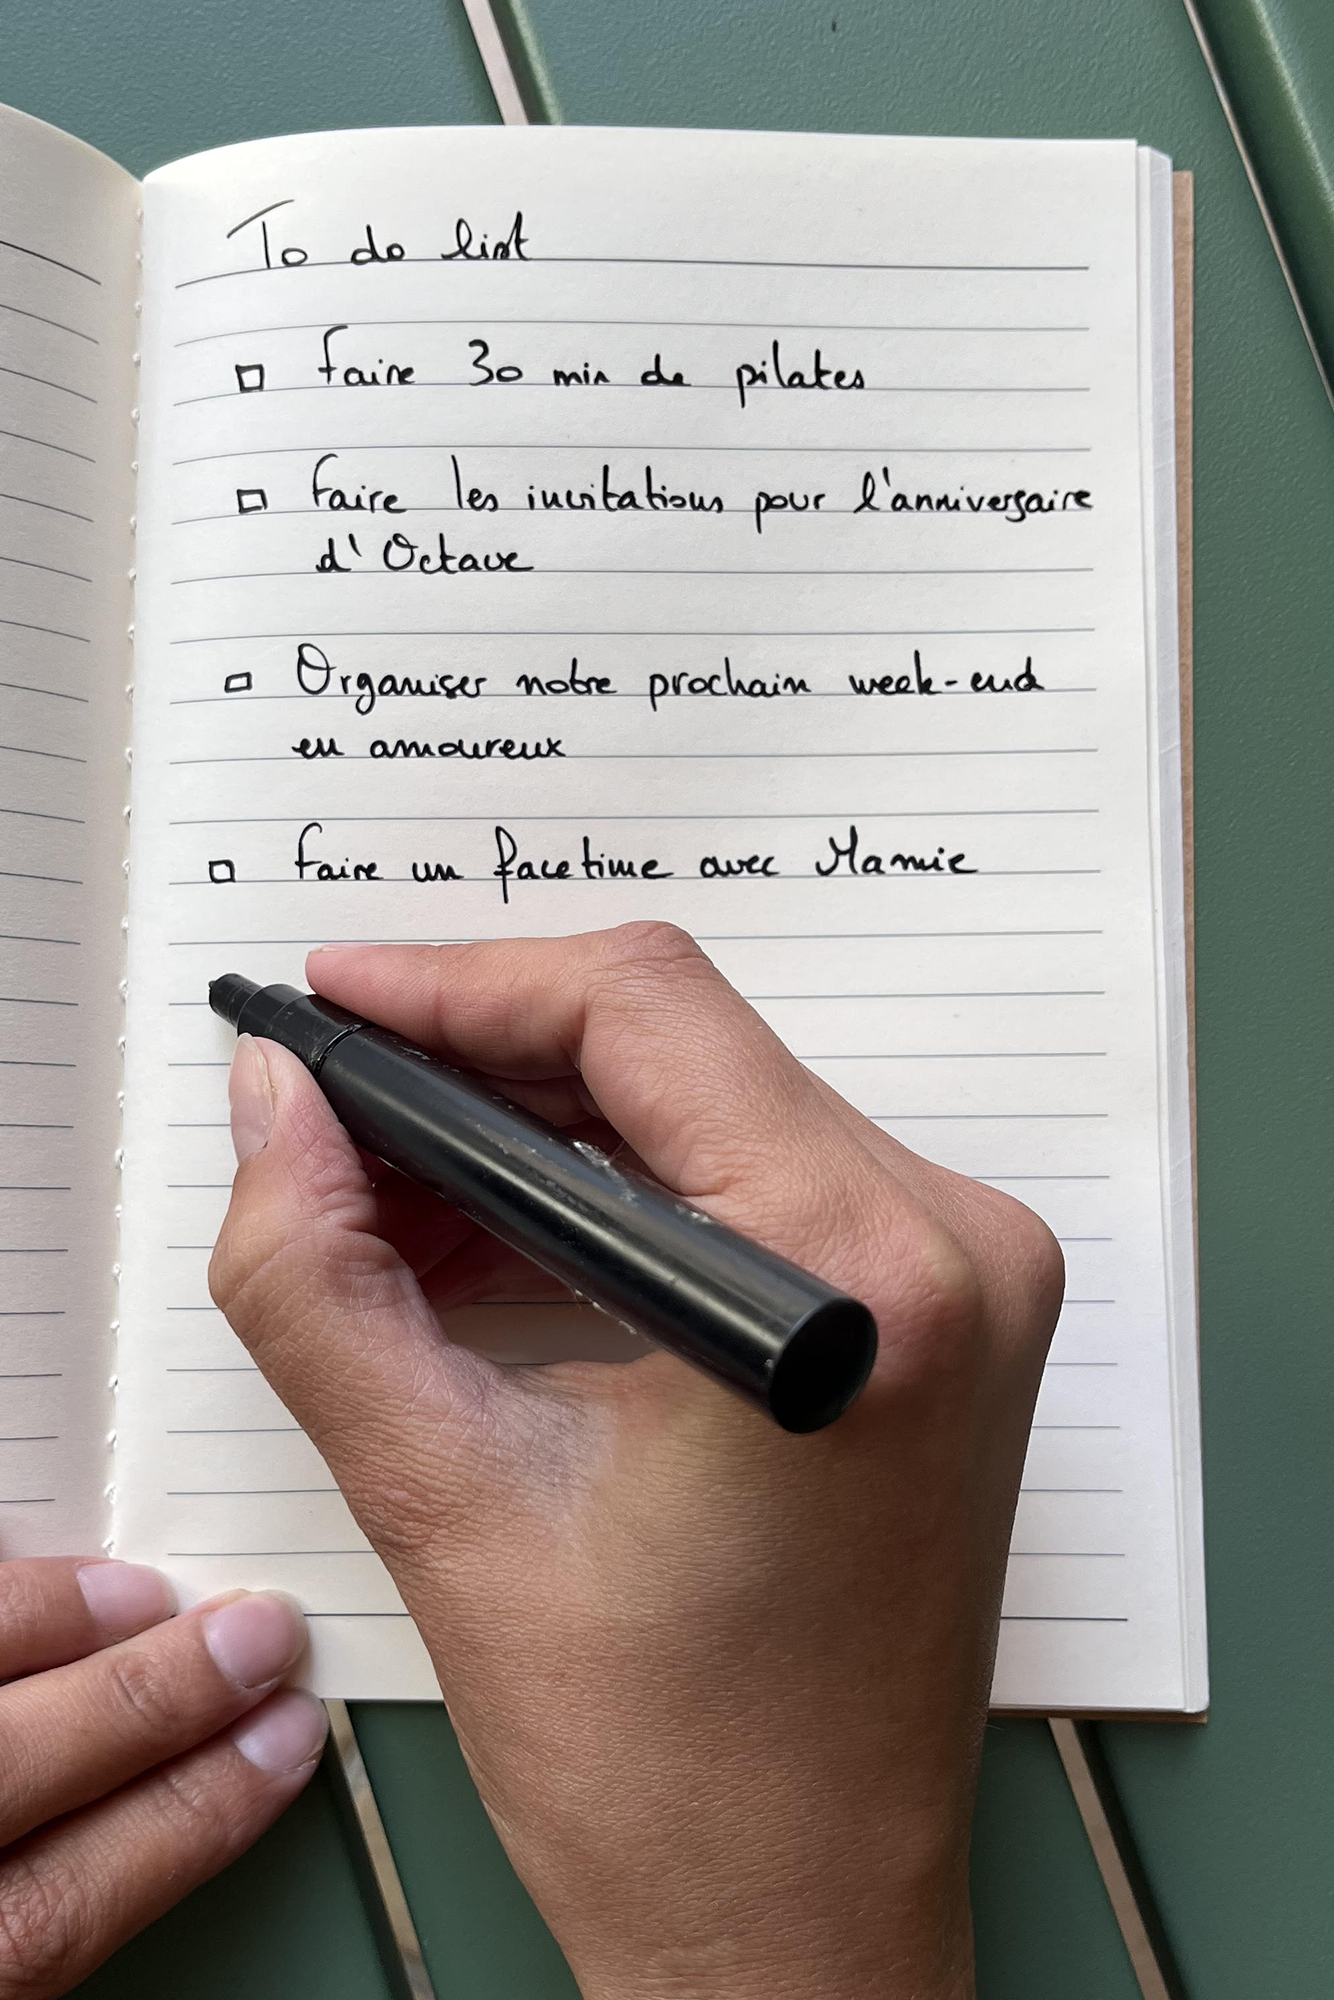 To do list
☐ Faire 30 min de pilates
☐ Faire les invitations pour l'anniversaire
d'Octave
☐ Organiser notre prochain week-end
en amoureux
☐ Faire un facetime avec Mamie